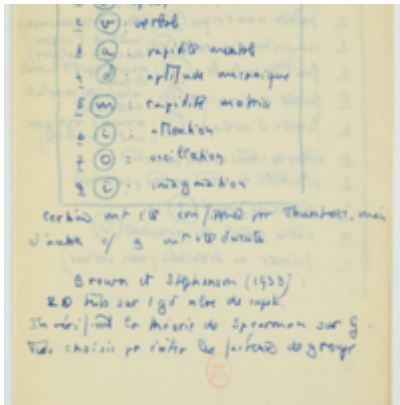 2 (v) verbal
3 (a) : rapidité mentale
4 : aptitude mécanique
5 (m) : rapidité motrice
6 : attention
7 (O) : oscillation
8 (i) imagination
certains ont été confirmés par Thurstone, mais
d'autres
Brown et Stephenson (1933) :
20 tests sur 1 gd nbre de sujets.
la théorie de Spearman sur G.
Tests choisis pr éviter les facteurs de groupe.